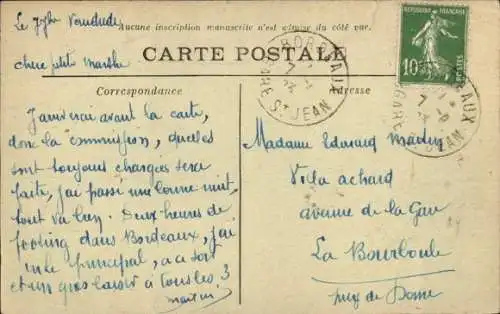 Le 7 7bre Vendredi
Aucune inscription manuscrite n'est admise du côté vue.
CARTE POSTALE
chere petite Marthe
Correspondance
Adresse
REPUBLIQUE FRANÇAISE
10
POSTES
BORDEAUX
GARE ST JEAN
BORDEAUX
GARE ST JEAN
J'arriverai avant la carte,
donc la commission, quelles
sont toujours chargées sera
faite, j'ai passé une bonne nuit
tout va bien. Deux heures de
footing dans Bordeaux, j'ai
vu le principal, a ce soir
et un gros baiser à tous les 3
Madame Edouard Martin
Villa achard
avenue de la Gare
La Bourboule
puy de Dome